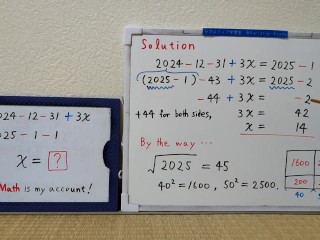 024-12-31 + 3x
025-1-1
x = ?
Math is my account!
Solution
2024-12-31 + 3x = 2025-1
(2025-1) -43 + 3x = 2025-2
-44 + 3x = -2
+44 for both sides, 3x = 42
x = 14
By the way ...
√2025 = 45
40² = 1600, 50² = 2500.
1600 2
200
40